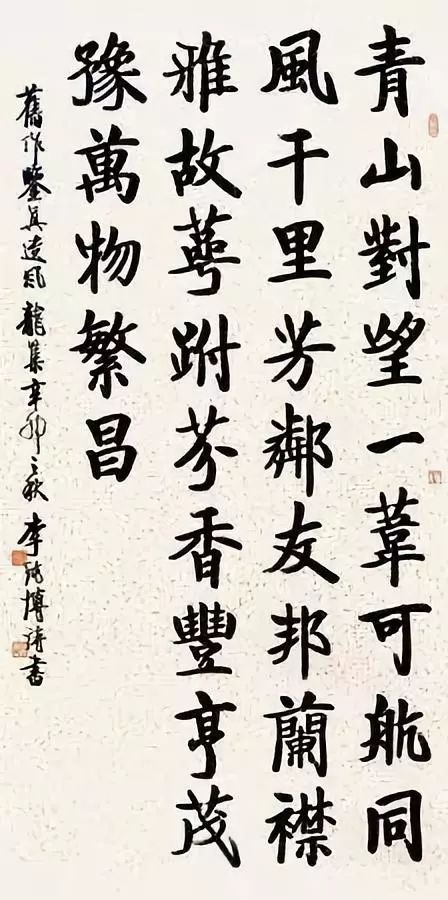 青山對望一葦可航同
風千里芳鄰友邦蘭襟
雅故萼跗芬香豐亨茂
豫萬物繁昌
舊作鑒真遺風龍集辛卯之秋李博濤書